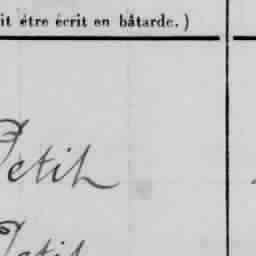 it être écrit en bâtarde.)
Petit
Petit